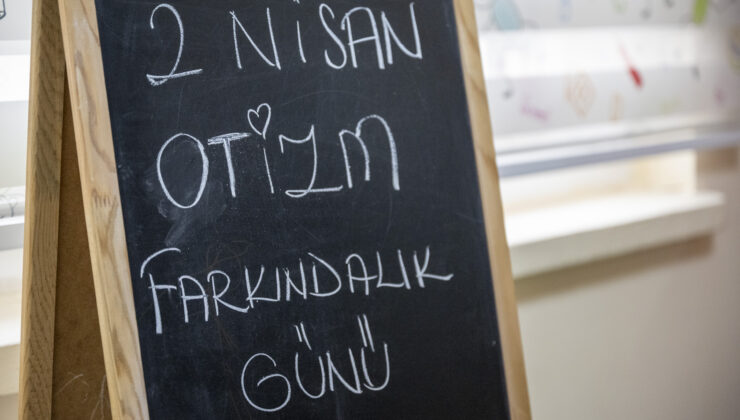 2 NİSAN
OTİZM
FARKINDALIK
GÜNÜ